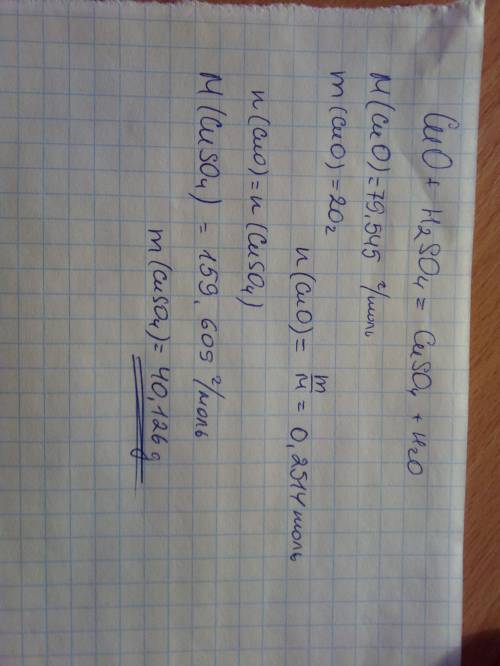 CuO + H₂SO₄ = CuSO₄ + H₂O
M(CuO) = 79,545 г/моль
m(CuO) = 20г
n(CuO) = m/M = 0,2514 моль
n(CuO) = n(CuSO₄)
M(CuSO₄) = 159,609 г/моль
m(CuSO₄) = 40,126 g